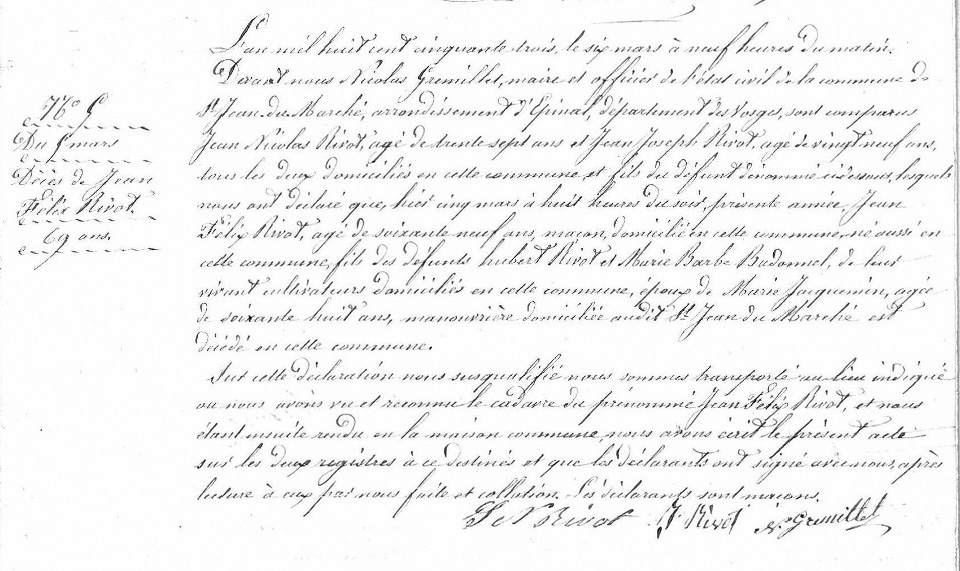 L'an mil huit cent cinquante trois, le six mars à neuf heures du matin.
Devant nous Nicolas Grimillet, maire et officier de l'état civil de la commune de
St Jean du Marché, arrondissement d'Epinal, département des Vosges, sont comparus
Jean Nicolas Rivot, agé de trente sept ans et Jean Joseph Rivot, agé de vingt neuf ans,
tous les deux domiciliés en cette commune et fils du défunt dénommé ci dessous, lesquels
nous ont déclaré que, hier cinq mars à huit heures du soir, présente année, Jean
Félix Rivot, agé de soixante neuf ans, maçon, domicilié en cette commune, né aussi en
cette commune, fils des défunts hubert Rivot et Marie Barbe Badonnel, de leur
vivant cultivateurs domiciliés en cette commune, époux de Marie Jacquemin, agée
de soixante huit ans, manouvrière domiciliée audit St Jean du Marché est
décédé en cette commune.
Sur cette déclaration nous susqualifié nous sommes transporté au lieu indiqué
ou nous avons vu et reconnu le cadavre du prénommé Jean Félix Rivot, et nous
étant ensuite rendu en la maison commune, nous avons écrit le présent acte
sur les deux registres à ce destinés et que les déclarants ont signé avec nous, après
lecture à eux par nous faite et collation. Les déclarants sont maçons.
J N Rivot J. Rivot N. Grimillet
Du 6 mars
Décès de Jean
Félix Rivot
69 ans.